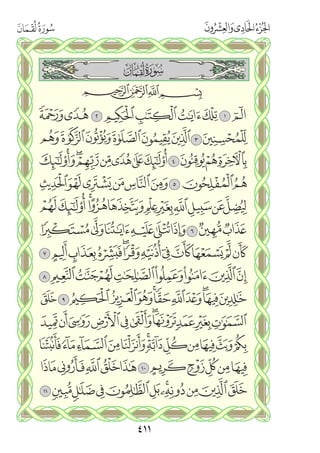 الجُزْءُ الْحَادِي وَالْعِشْرُونَ
سُورَةُ لُقْمَانَ
سُورَةُ لُقْمَانَ
بِسْمِ اللَّهِ الرَّحْمَٰنِ الرَّحِيمِ
الٓمٓ ١ تِلْكَ ءَايَٰتُ ٱلْكِتَٰبِ ٱلْحَكِيمِ ٢ هُدًى وَرَحْمَةً
لِّلْمُحْسِنِينَ ٣ ٱلَّذِينَ يُقِيمُونَ ٱلصَّلَوٰةَ وَيُؤْتُونَ ٱلزَّكَوٰةَ وَهُم
بِٱلْءَاخِرَةِ هُمْ يُوقِنُونَ ٤ أُو۟لَٰٓئِكَ عَلَىٰ هُدًى مِّن رَّبِّهِمْ وَأُو۟لَٰٓئِكَ
هُمُ ٱلْمُفْلِحُونَ ٥ وَمِنَ ٱلنَّاسِ مَن يَشْتَرِى لَهْوَ ٱلْحَدِيثِ
لِيُضِلَّ عَن سَبِيلِ ٱللَّهِ بِغَيْرِ عِلْمٍ وَيَتَّخِذَهَا هُزُوًا أُو۟لَٰٓئِكَ لَهُمْ
عَذَابٌ مُّهِينٌ ٦ وَإِذَا تُتْلَىٰ عَلَيْهِ ءَايَٰتُنَا وَلَّىٰ مُسْتَكْبِرًا
كَأَن لَّمْ يَسْمَعْهَا كَأَنَّ فِىٓ أُذُنَيْهِ وَقْرًا فَبَشِّرْهُ بِعَذَابٍ أَلِيمٍ ٧
إِنَّ ٱلَّذِينَ ءَامَنُوا۟ وَعَمِلُوا۟ ٱلصَّٰلِحَٰتِ لَهُمْ جَنَّٰتُ ٱلنَّعِيمِ ٨
خَٰلِدِينَ فِيهَا وَعْدَ ٱللَّهِ حَقًّا وَهُوَ ٱلْعَزِيزُ ٱلْحَكِيمُ ٩ خَلَقَ
ٱلسَّمَٰوَٰتِ بِغَيْرِ عَمَدٍ تَرَوْنَهَا وَأَلْقَىٰ فِى ٱلْأَرْضِ رَوَٰسِىَ أَن تَمِيدَ
بِكُمْ وَبَثَّ فِيهَا مِن كُلِّ دَآبَّةٍ وَأَنزَلْنَا مِنَ ٱلسَّمَآءِ مَآءً فَأَنۢبَتْنَا
فِيهَا مِن كُلِّ زَوْجٍ كَرِيمٍ ١٠ هَٰذَا خَلْقُ ٱللَّهِ فَأَرُونِى مَاذَا
خَلَقَ ٱلَّذِينَ مِن دُونِهِۦ بَلِ ٱلظَّٰلِمُونَ فِى ضَلَٰلٍ مُّبِينٍ ١١
٤١١